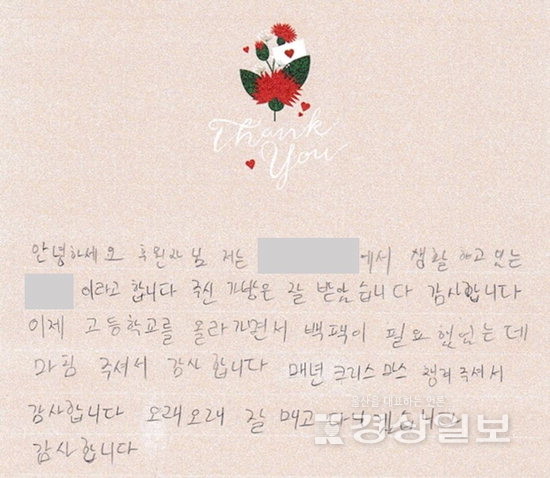 Thank
You
안녕하세요 후원자님 저는 에서 생활하고 있는
이라고 합니다 주신 가방은 잘 받았습니다 감사합니다
이제 고등학교를 올라가면서 백팩이 필요했었는데
마침 주셔서 감사합니다 매년 크리스마스 챙겨주셔서
감사합니다 오래오래 잘 메고 다니겠습니다
감사합니다
울산을 대표하는 언론
경상일보